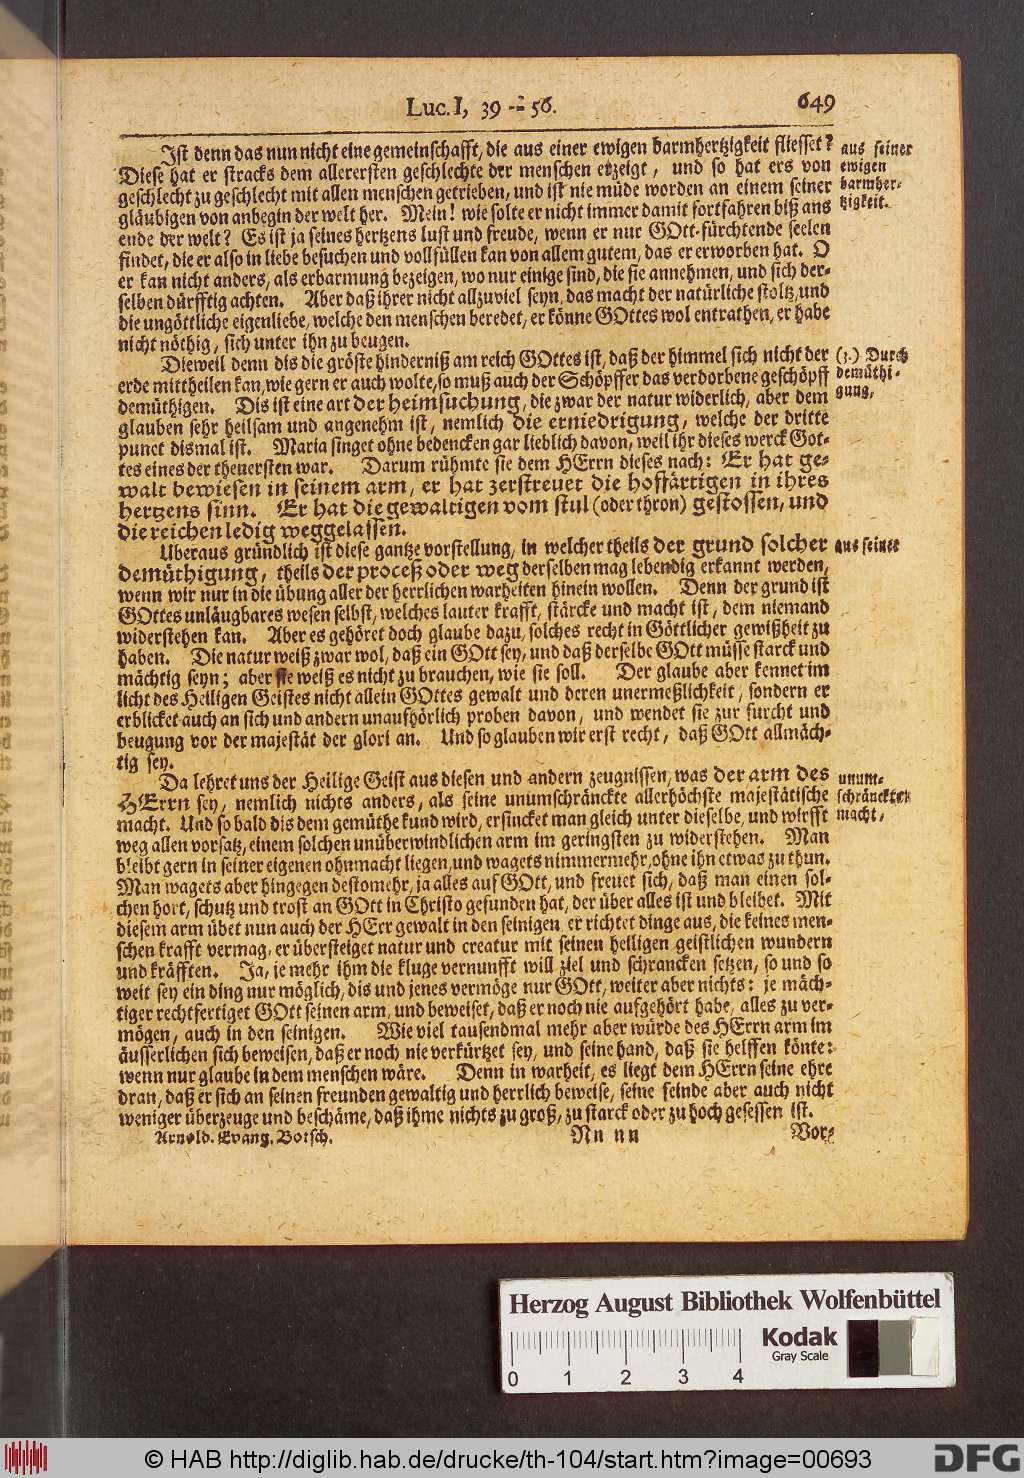 Luc. I, 39 -- 56.
649
Ist denn das nun nicht eine gemeinschafft, die aus einer ewigen barmhertzigkeit fliesset?
Diese hat er stracks dem allerersten geschlechte der menschen erzeigt, und so hat ers von
geschlecht zu geschlecht mit allen menschen getrieben, und ist nie müde worden an einem seiner
gläubigen von anbegin der welt her. Mein! wie solte er nicht immer damit fortfahren biß ans
ende der welt? Es ist ja seines hertzens lust und freude, wenn er nur GOtt-fürchtende seelen
findet, die er also in liebe besuchen und vollfüllen kan von allem gutem, das er erworben hat. O
er kan nicht anders, als erbarmung bezeigen, wo nur einige sind, die sie annehmen, und sich der-
selben dürfftig achten. Aber daß ihrer nicht allzuviel seyn, das macht der natürliche stoltz, und
die ungöttliche eigenliebe, welche den menschen beredet, er könne GOttes wol entrathen, er habe
nicht nöthig, sich unter ihn zu beugen.
aus seiner
ewigen
barmher-
tzigkeit.
Dieweil denn dis die gröste hinderniß am reich GOttes ist, daß der himmel sich nicht der
erde mittheilen kan, wie gern er auch wolte, so muß auch der Schöpffer das verdorbene geschöpff
demüthigen. Dis ist eine art der heimsuchung, die zwar der natur widerlich, aber dem
glauben sehr heilsam und angenehm ist, nemlich die erniedrigung, welche der dritte
punct dismal ist. Maria singet ohne bedencken gar lieblich davon, weil ihr dieses werck Got-
tes eines der theuersten war. Darum rühmte sie dem HErrn dieses nach: Er hat ge-
walt bewiesen in seinem arm, er hat zerstreuet die hoffärtigen in ihres
hertzens sinn. Er hat die gewaltigen vom stul (oder thron) gestossen, und
die reichen ledig weggelassen.
(3.) Durch
demüthi-
gung,
Uberaus gründlich ist diese gantze vorstellung, in welcher theils der grund solcher
demüthigung, theils der proceß oder weg derselben mag lebendig erkannt werden,
wenn wir nur in die übung aller der herrlichen warheiten hinein wollen. Denn der grund ist
GOttes unläugbares wesen selbst, welches lauter krafft, stärcke und macht ist, dem niemand
widerstehen kan. Aber es gehöret doch glaube dazu, solches recht in Göttlicher gewißheit zu
haben. Die natur weiß zwar wol, daß ein GOtt sey, und daß derselbe GOtt müsse starck und
mächtig seyn; aber sie weiß es nicht zu brauchen, wie sie soll. Der glaube aber kennet im
licht des Heiligen Geistes nicht allein GOttes gewalt und deren unermeßlichkeit, sondern er
erblicket auch an sich und andern unaufhörlich proben davon, und wendet sie zur furcht und
beugung vor der majestät der glori an. Und so glauben wir erst recht, daß GOtt allmäch-
tig sey.
aus seiner
Da lehret uns der Heilige Geist aus diesen und andern zeugnissen, was der arm des
HErrn sey, nemlich nichts anders, als seine unumschränckte allerhöchste majestätische
macht. Und so bald dis dem gemüthe kund wird, ersincket man gleich unter dieselbe, und wirfft
weg allen vorsatz, einem solchen unüberwindlichen arm im geringsten zu widerstehen. Man
bleibt gern in seiner eigenen ohnmacht liegen, und wagets nimmermehr, ohne ihn etwas zu thun.
Man wagets aber hingegen destomehr, ja alles auf GOtt, und freuet sich, daß man einen sol-
chen hort, schutz und trost an GOtt in Christo gefunden hat, der über alles ist und bleibet. Mit
diesem arm übet nun auch der HErr gewalt in den seinigen er richtet dinge aus, die keines men-
schen krafft vermag, er übersteiget natur und creatur mit seinen heiligen geistlichen wundern
und kräfften. Ja, je mehr ihm die kluge vernunfft will ziel und schrancken setzen, so und so
weit sey ein ding nur möglich, dis und jenes vermöge nur GOtt, weiter aber nichts: je mäch-
tiger rechtfertiget GOtt seinen arm, und beweiset, daß er noch nie aufgehört habe, alles zu ver-
mögen, auch in den seinigen. Wie viel tausendmal mehr aber würde des HErrn arm im
äusserlichen sich beweisen, daß er noch nie verkürtzet sey, und seine hand, daß sie helffen könte:
wenn nur glaube in dem menschen wäre. Denn in warheit, es liegt dem HErrn seine ehre
dran, daß er sich an seinen freunden gewaltig und herrlich beweise, seine feinde aber auch nicht
weniger überzeuge und beschäme, daß ihme nichts zu groß, zu starck oder zu hoch gesessen ist.
unum-
schränckten
macht,
Arnold. Evang. Botsch.
Nn nn
Vor-
Herzog August Bibliothek Wolfenbüttel
0 1 2 3 4
Kodak
Gray Scale
© HAB http://diglib.hab.de/drucke/th-104/start.htm?image=00693
DFG